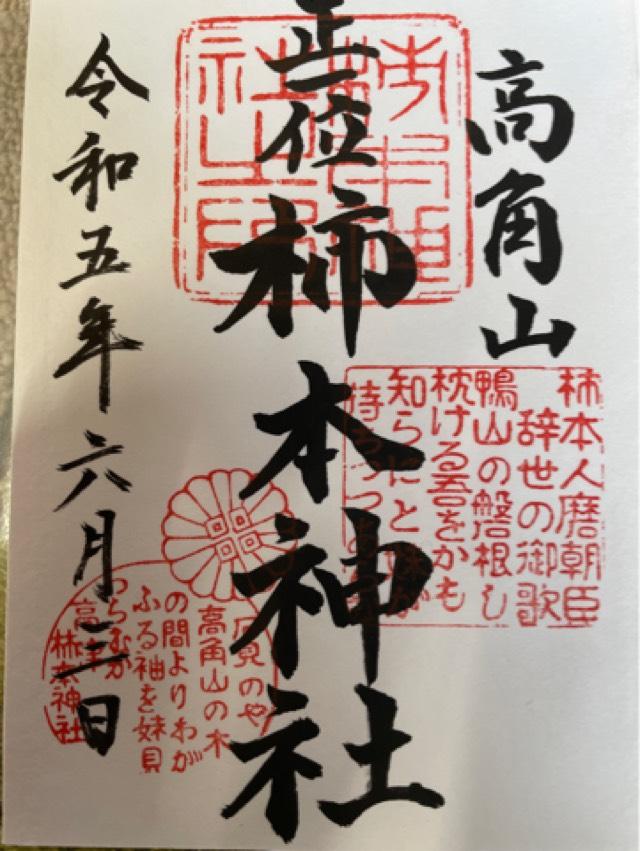 高角山
正一位
柿本神社
令和五年六月三日
柿本神社之印
柿本人麿朝臣
辞世の御歌
鴨山の磐根し
枕ける吾をかも
知らにと妹が
待ちつつ
高角山の木
の間よりわが
ふる袖を妹見
つらむか
柿本神社